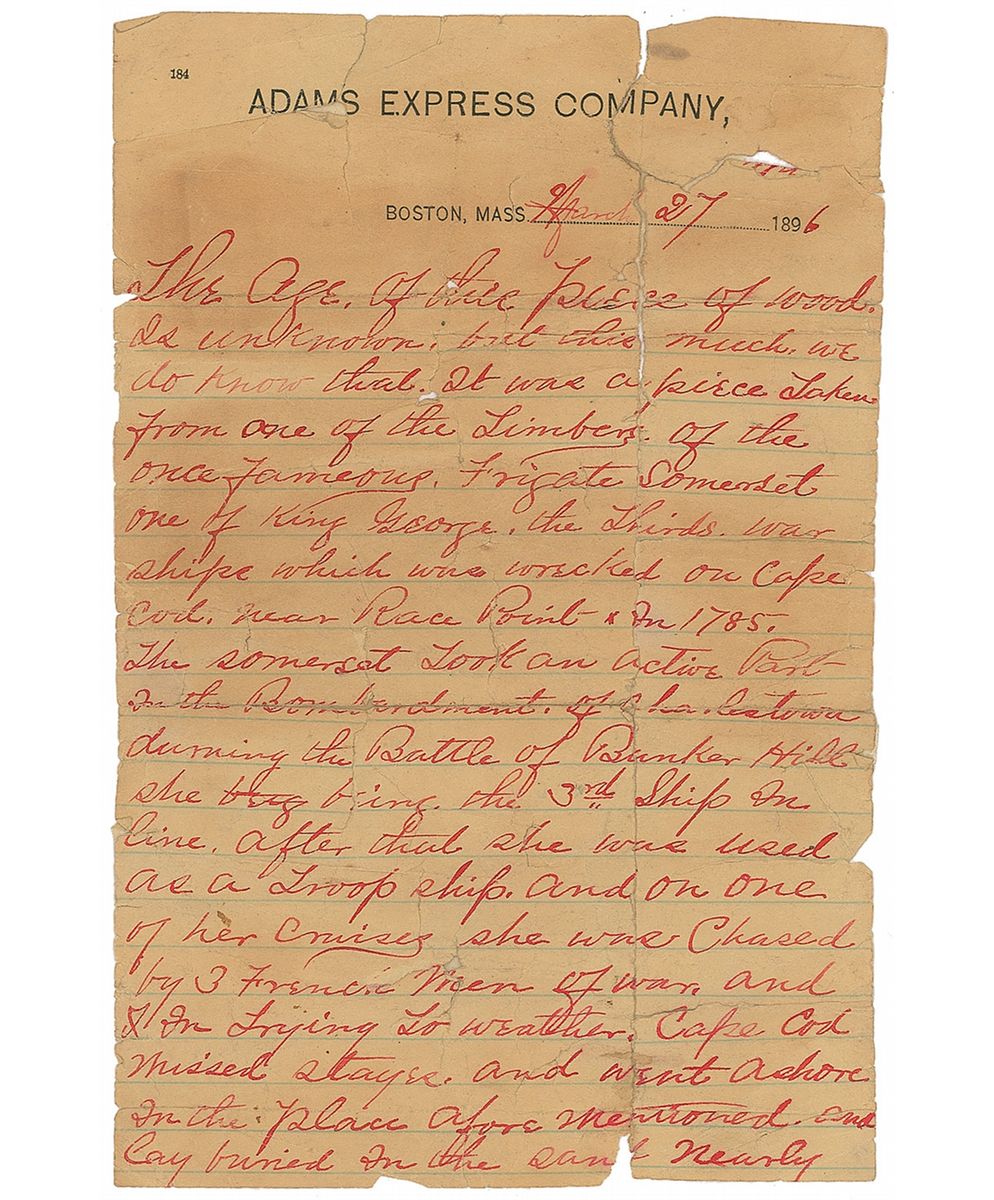 184
ADAMS EXPRESS COMPANY,
BOSTON, MASS. March 27 1896
The Age. of this piece of wood.
Is unknown. but this much. we
do Know that. It was a piece Taken
from one of the Timbers. of the
once fameous. Frigate Somerset
one of King George. the Thirds. war
ships which was wrecked on Cape
Cod. near Race Point In 1785.
The somerset Took an active Part
In the Bombardment. of Charlestown
durning the Battle of Bunker Hill
she being. the 3rd Ship In
line. after that she was used
as a Troop ship. and on one
of her Cruises she was Chased
by 3 French Men of war. and
In Trying To weather. Cape Cod
missed stayes. and went ashore
In the place afore mentioned. and
Lay buried In the sand nearly